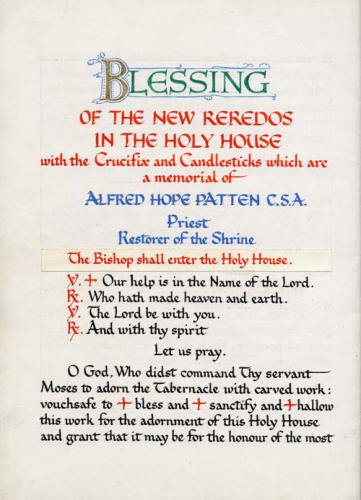 BLESSING
OF THE NEW REREDOS
IN THE HOLY HOUSE
with the Crucifix and Candlesticks which are
a memorial of
ALFRED HOPE PATTEN C.S.A.
Priest
Restorer of the Shrine
The Bishop shall enter the Holy House.
℣. + Our help is in the Name of the Lord.
℟. Who hath made heaven and earth.
℣. The Lord be with you.
℟. And with thy spirit
Let us pray.
O God, Who didst command Thy servant
Moses to adorn the Tabernacle with carved work:
vouchsafe to + bless and + sanctify and + hallow
this work for the adornment of this Holy House
and grant that it may be for the honour of the most